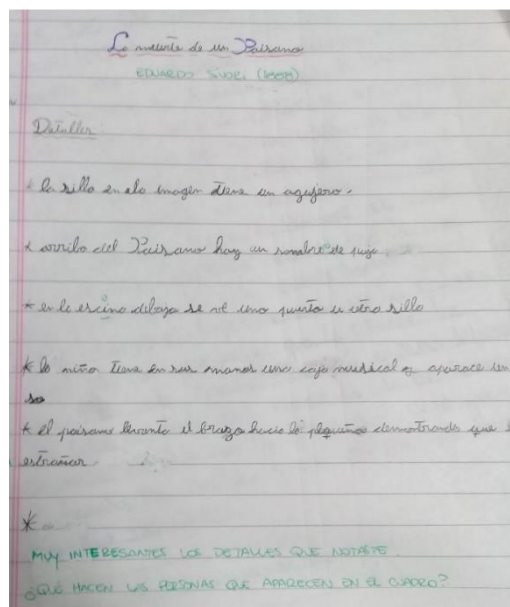 La muerte de un Paisano
EDUARDO SIVORI (1888)
Detalles
* la silla en ela imagen tiene un agujero.
* arriba del Paisano hay un sombre de
* en la escina debajo se ve una y otra silla
* la niña tiene en sus manos una caja musical aparece un
* el paisano levanta el brazo hacia la pequeña demostrando que
estrañar
*
MUY INTERESANTES LOS DETALLES QUE NOTASTE.
¿QUÉ HACEN LAS PERSONAS QUE APARECEN EN EL CUADRO?